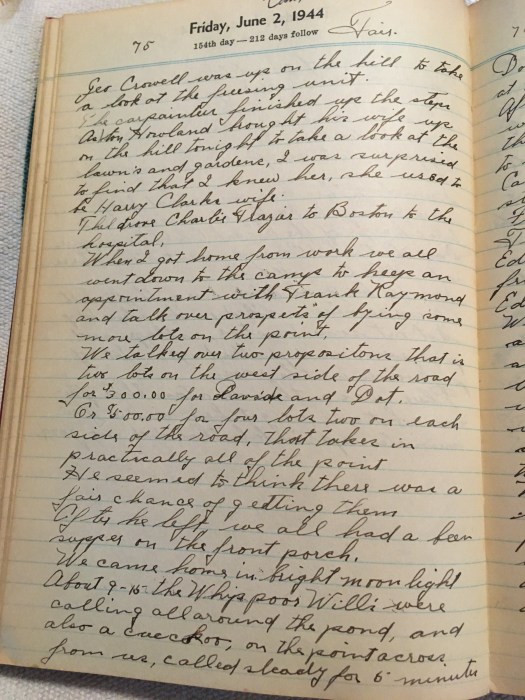 Friday, June 2, 1944
75
154th day—212 days follow
Fair.
Geo Crowell was up on the hill to take
a look at the freesing unit.
The carpainter finished up the steps
Howland brought his wife up
on the hill tonight to take a look at the
lawn's and gardens, I was surprised
to find that I knew her, she used to
be Harry Clarks wife.
drove Charlie to Boston to the
hospital,
When I got home from work we all
went down to the camp to keep an
appointment with Frank Raymond
and talk over prospets of bying some
more lots on the point.
We talked over two propositons that is
two lots on the west side of the road
for $300.00 for and Dot.
Or $500.00 for four lots two on each
side of the road, that takes in
practically all of the point
He seemed to think there was a
fair chance of getting them
After he left we all had a been
supper on the front porch.
We came home in bright moon light
About 9-15 the Whip poor Will's were
calling all around the pond, and
also a cueckoo, on the point across
from us, called steady for 5 minutes